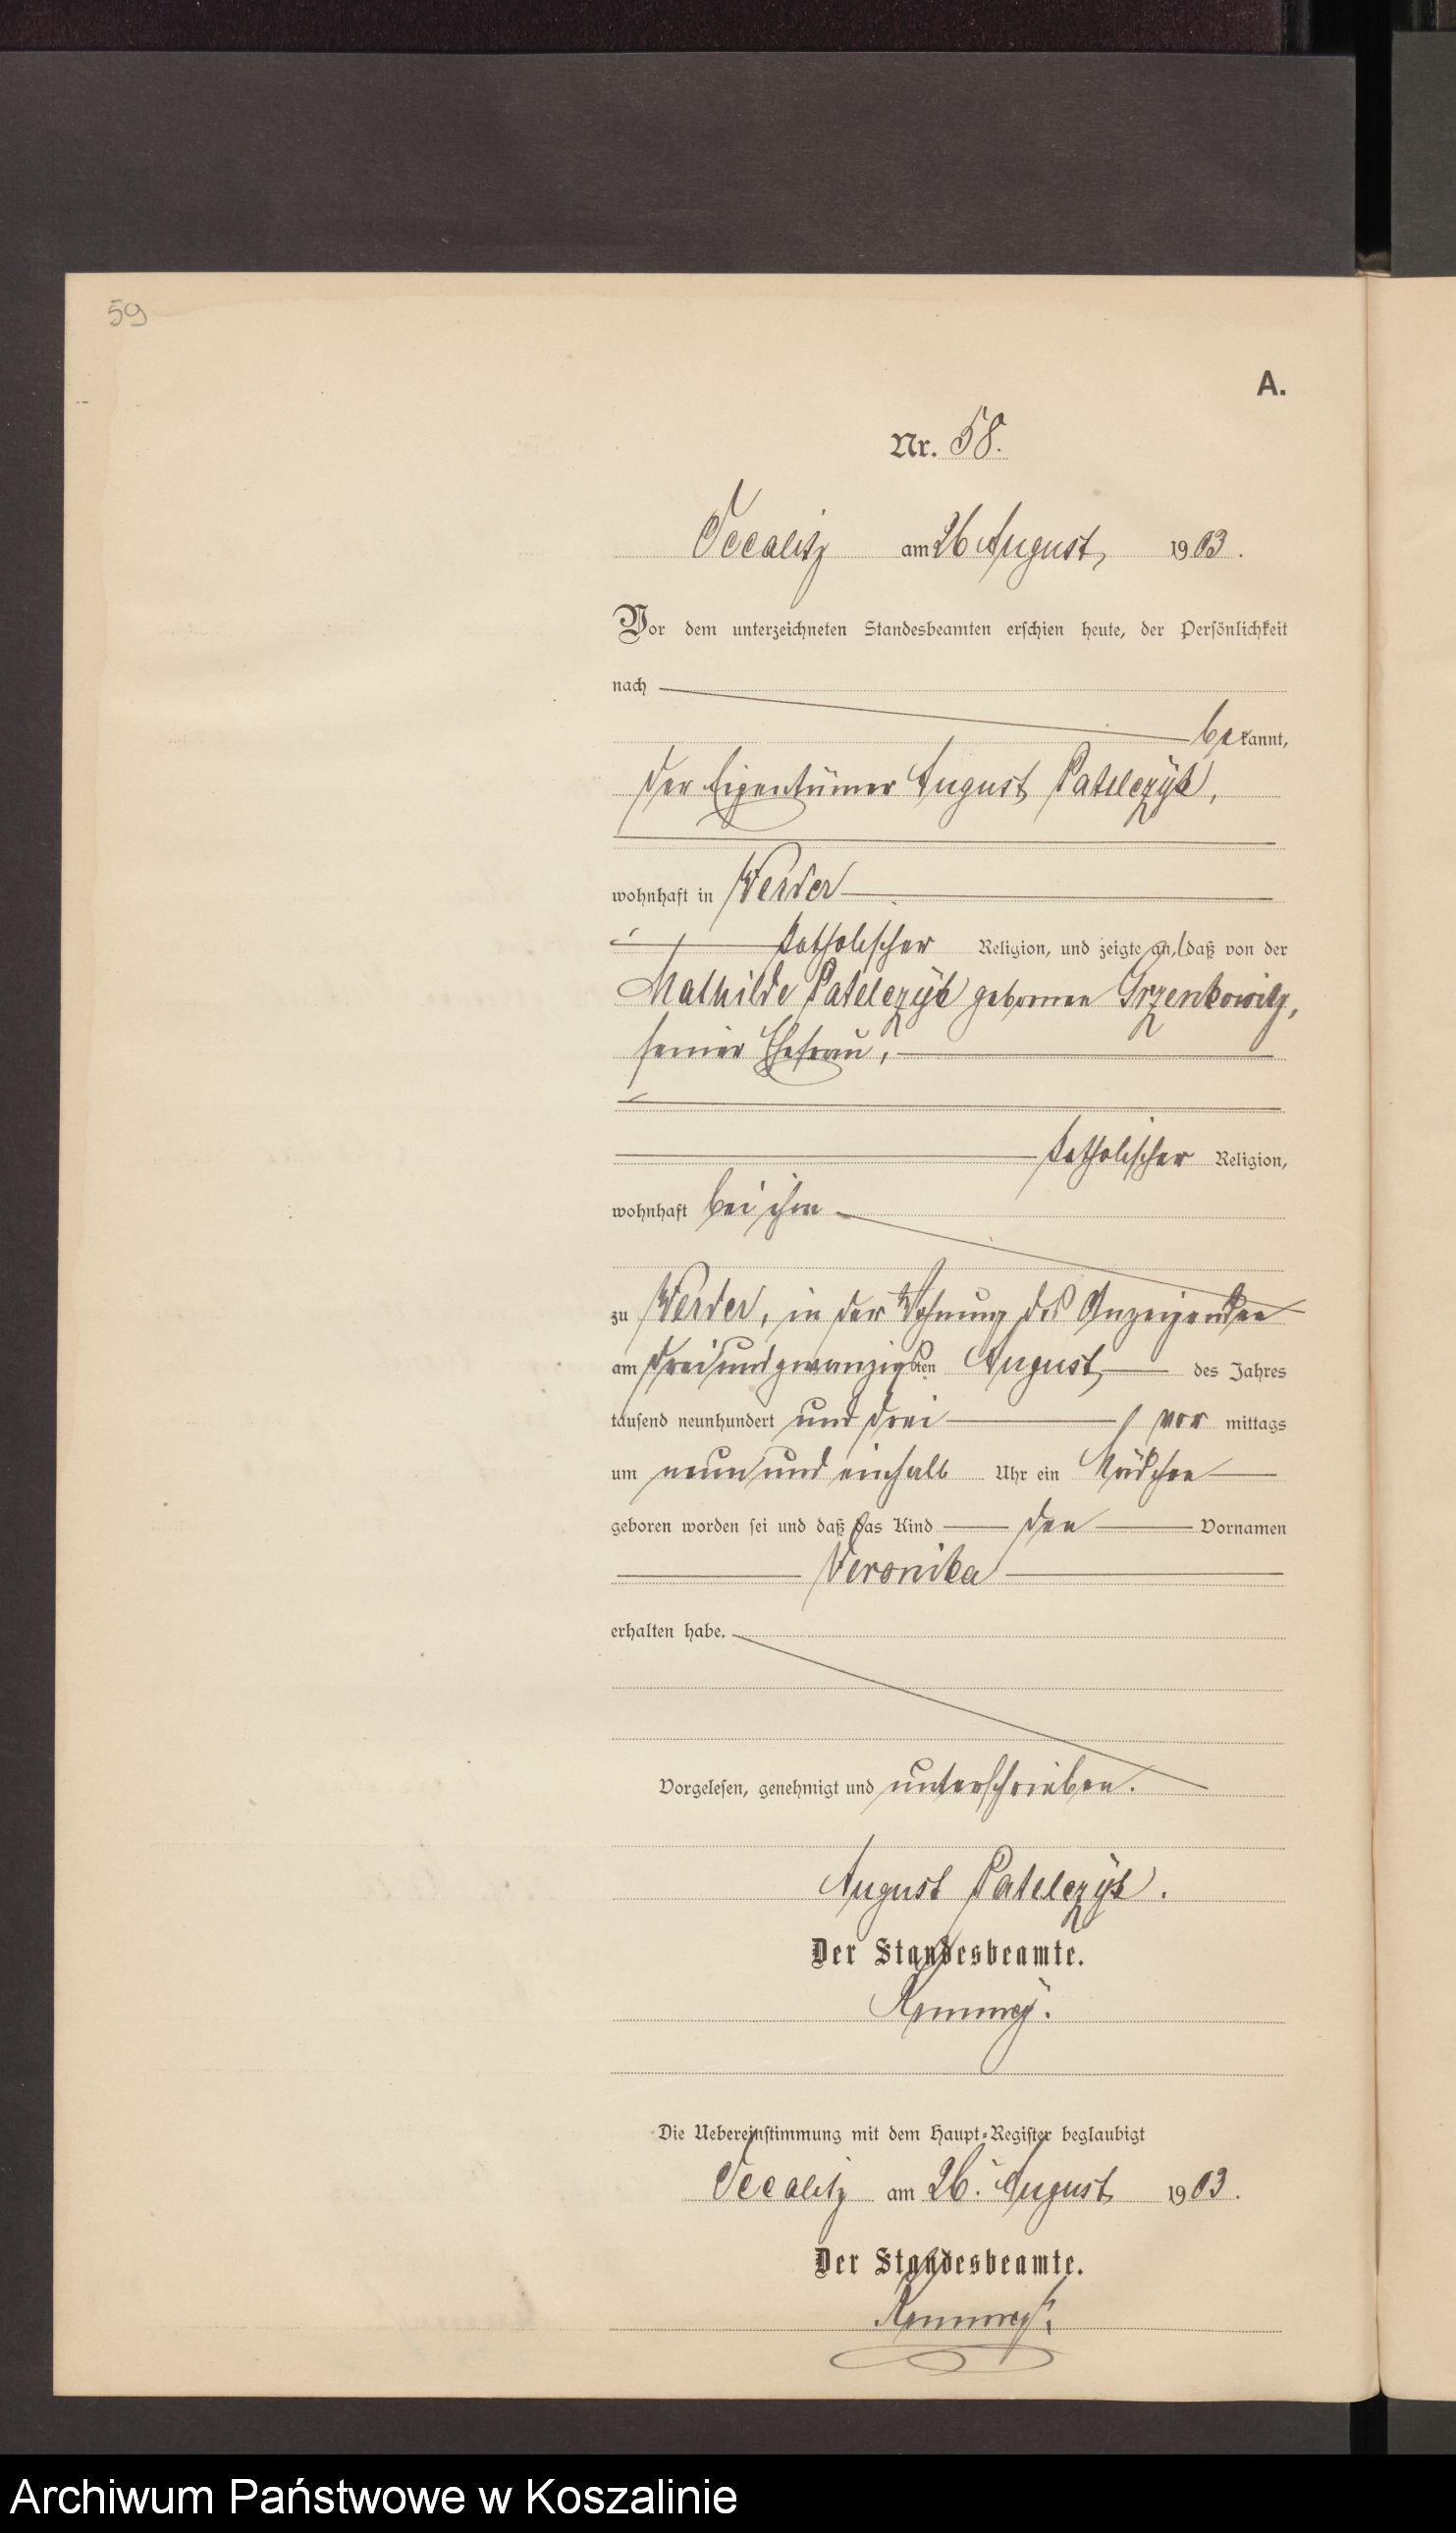 59
A.
Nr. 58.
am 26 August 1903.
Vor dem unterzeichneten Standesbeamten erschien heute, der Persönlichkeit
nach
bekannt,
der Eigentümer August Patelczÿk,
wohnhaft in Werder
katholischer Religion, und zeigte an, daß von der
Mathilde Patelczÿk geborenen Grzenkowitz,
seiner Ehefrau,
katholischer Religion,
wohnhaft bei ihm
zu Werder, in der Wohnung des Anzeigenden
am dreiundzwanzigsten August des Jahres
tausend neunhundert und drei vor mittags
um neun und einhalb Uhr ein Mädchen
geboren worden sei und daß das Kind den Vornamen
Veronika
erhalten habe.
Vorgelesen, genehmigt und unterschrieben.
August Patelczÿk.
Der Standesbeamte.
Die Uebereinstimmung mit dem Haupt-Register beglaubigt
am 26. August 1903.
Der Standesbeamte.
Archiwum Państwowe w Koszalinie